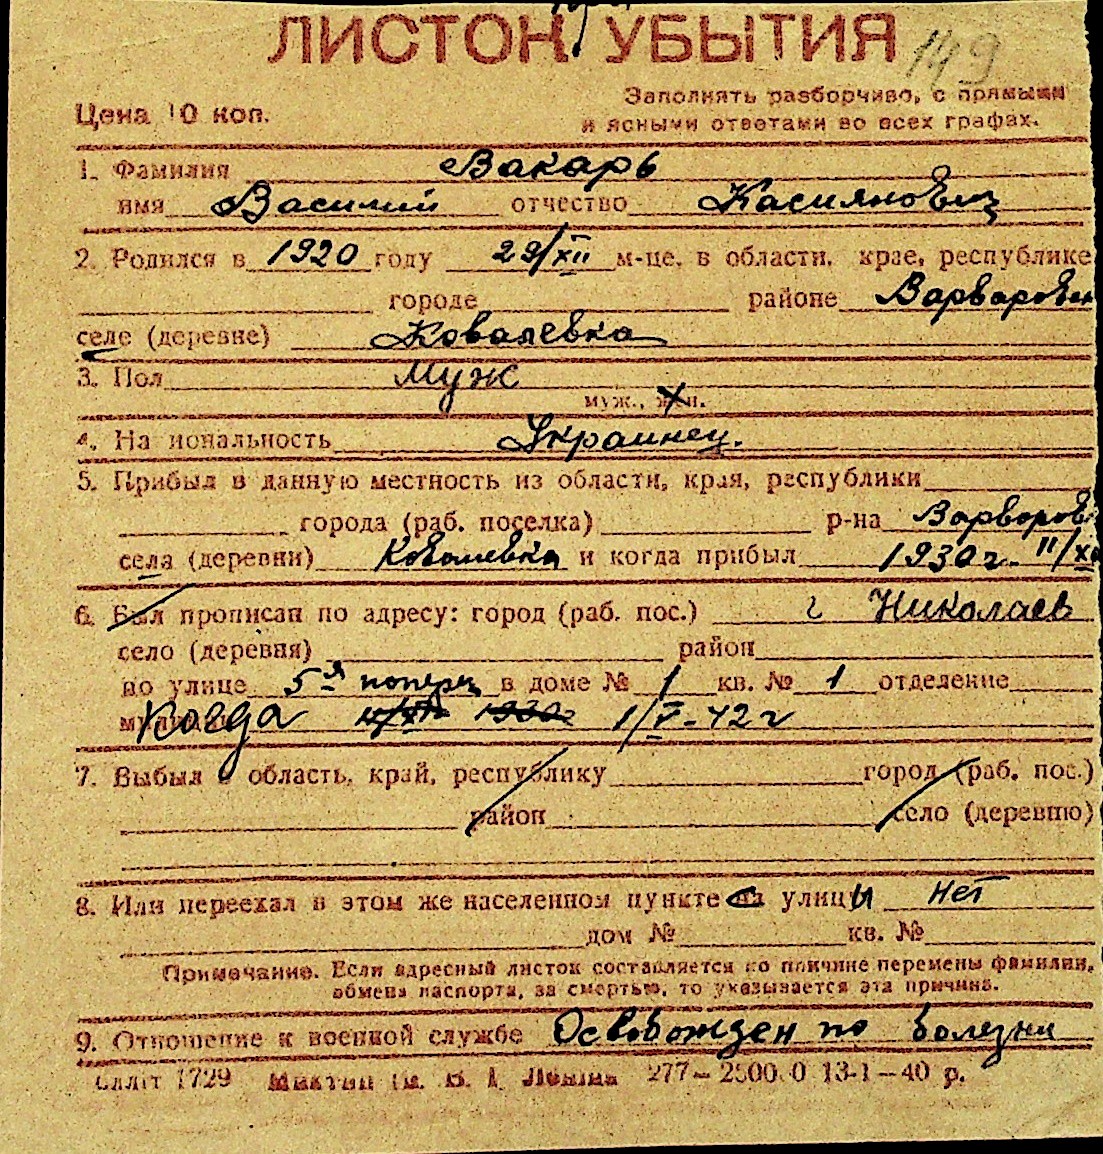 ЛИСТОК УБЫТИЯ
149
Цена 10 коп.
Заполнять разборчиво, с прямыми
и ясными ответами во всех графах.
1. Фамилия Вакарь
имя Василий отчество Касиянович
2. Родился в 1920 году 29/XII м-це, в области, крае, республике
городе районе Варваровск
селе (деревне) Ковалевка
3. Пол Муж
муж., жен.
4. Национальность Украинец.
5. Прибыл в данную местность из области, края, республики
города (раб. поселка) р-на Варваров
села (деревни) Ковалевка и когда прибыл 1930 г. 11/XII
6. Был прописан по адресу: город (раб. пос.) г Николаев
село (деревня) район
по улице 5я попереч в доме № 1 кв. № 1 отделение
Когда 1/V-42 г
7. Выбыл в область, край, республику город (раб. пос.)
район село (деревню)
8. Или переехал в этом же населенном пункте с улицы нет
дом № кв. №
Примечание. Если адресный листок составляется по причине перемены фамилии,
обмена паспорта, за смертью, то указывается эта причина.
9. Отношение к военной службе Освобожден по болезни
1729 Ленина 277—25000 13-1—40 р.